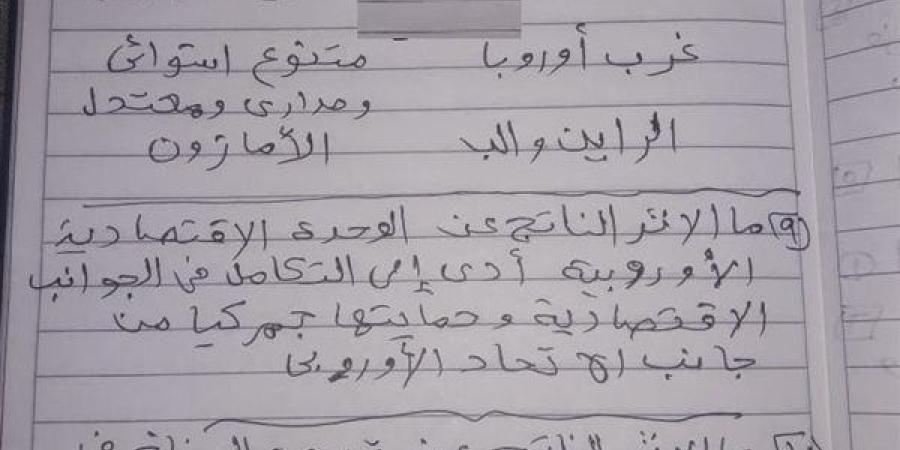 غرب أوروبا متنوع استوائى
ومدارى ومعتدل
الراين والب الأمازون
٩ ما الاثر الناتج عن الوحدة الاقتصادية
الأوروبية أدى إلى التكامل فى الجوانب
الاقتصادية وحمايتها جمركيا من
جانب الاتحاد الأوروبى